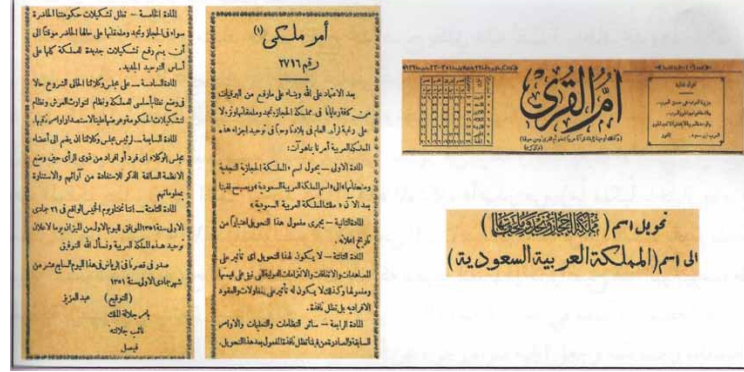 أم القرى
تحويل اسم (مملكة الحجاز ونجد وملحقاتها)
الى اسم (المملكة العربية السعودية)
أمر ملكي (١)
رقم ٢٧١٦
بعد الاعتماد على الله وبناء على مارفع من البرقيات
من كافة رعايانا في مملكة الحجاز ونجد وملحقاتها ونزولا
على رغبة الرأى العام في بلادنا وحبا في توحيد اجزاء هذه
المملكة العربية أمرنا بما هو آت:
المادة الاولى — يحول اسم «المملكة الحجازية النجدية
وملحقاتها» الى اسم «المملكة العربية السعودية» ويصبح لقبنا
بعد الآن «ملك المملكة العربية السعودية»
المادة الثانية — يجرى مفعول هذا التحويل اعتبارا من
تاريخ إعلانه.
المادة الثالثة — لا يكون لهذا التحويل اى تأثير على
المعاهدات والاتفاقات والالتزامات الدولية التى تبقى على قيمتها
ومفعولها وكذلك لا يكون له تأثير على المقاولات والعقود
الافرادية بل تظل نافذة.
المادة الرابعة — سائر النظامات والتعليمات والاوامر
السابقة والصادرة من قبلنا تظل نافذة المفعول بعد هذا التحويل.
المادة الخامسة — تظل تشكيلات حكومتنا الحاضرة
سواء في الحجاز ونجد وملحقاتها على حالها الحاضر موقتا الى
أن يتم وضع تشكيلات جديدة للمملكة كلها على
أساس التوحيد الجديد.
المادة السادسة — على مجلس وكلائنا الحالى الشروع حالا
في وضع نظام أساسى للمملكة ونظام لتوارث العرش ونظام
لتشكيلات الحكومة وعرضها علينا لاستصدار اوامرنا فيها.
المادة السابعة — لرئيس مجلس وكلائنا ان يضم الى أعضاء
مجلس الوكلاء اى فرد أو افراد من ذوى الرأى حين وضع
الانظمة السالفة الذكر للاستفادة من آرائهم والاستنارة
بمعلوماتهم
المادة الثامنة — اننا نختار يوم الخميس الواقع في ٢١ جمادى
الاولى سنة ١٣٥١ الموافق لليوم الاول من الميزان يوما لاعلان
توحيد هذه المملكة العربية ونسأل الله التوفيق
صدر في قصرنا في الرياض في هذا اليوم السابع عشر من
شهر جمادى الاولى سنة ١٣٥١
(التوقيع) عبد العزيز
بأمر جلالة الملك
نائب جلالته
فيصل